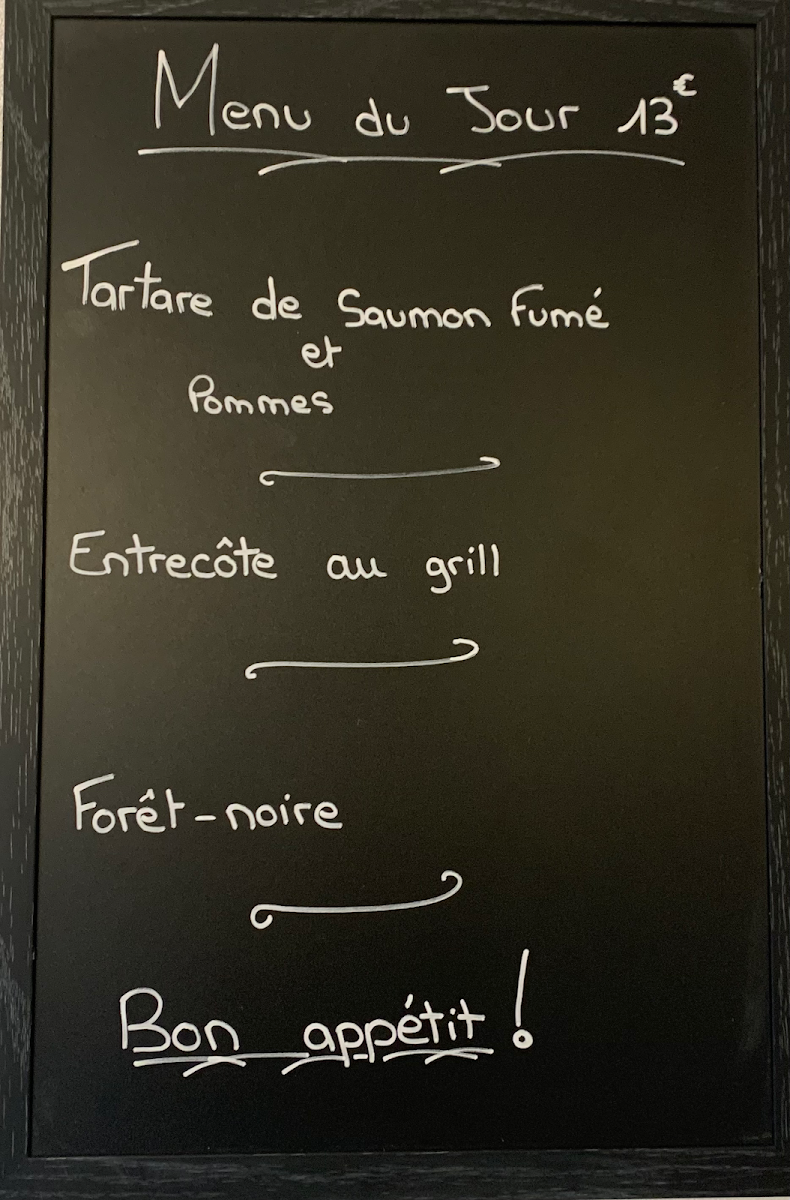 Menu du Jour 13€
Tartare de Saumon Fumé
et
Pommes
Entrecôte au grill
Forêt-noire
Bon appétit !